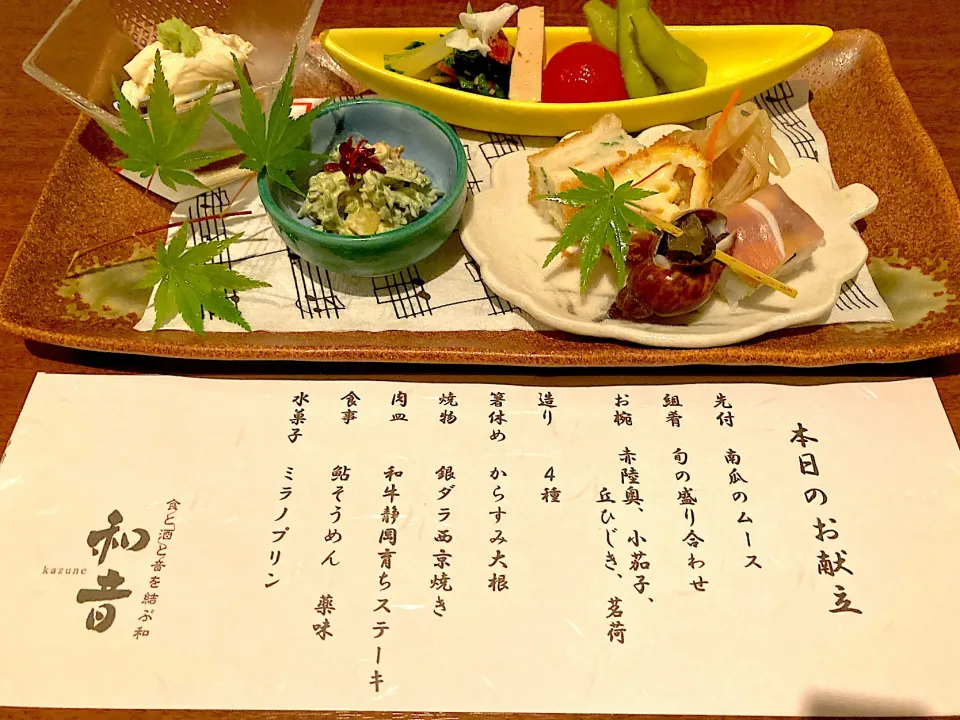 本日のお献立
先付 南瓜のムース
組肴 旬の盛り合わせ
お椀 赤陸奥、小茄子、
丘ひじき、茗荷
造り 4種
箸休め からすみ大根
焼物 銀ダラ西京焼き
肉皿 和牛静岡育ちステーキ
食事 鮎そうめん 薬味
水菓子 ミラノプリン
食と酒と音を結ぶ和
和音
kazune